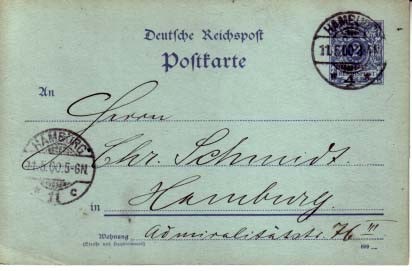 Deutsche Reichspost
Postkarte
HAMBURG
11.5.00.
* 1 *
An
Herrn
HAMBURG
11.5.00.5-6N.
* 11 c
Chr. Schmidt
Hamburg
Wohnung
(Straße und Hausnummer)
Admiralitätstr. 76 III